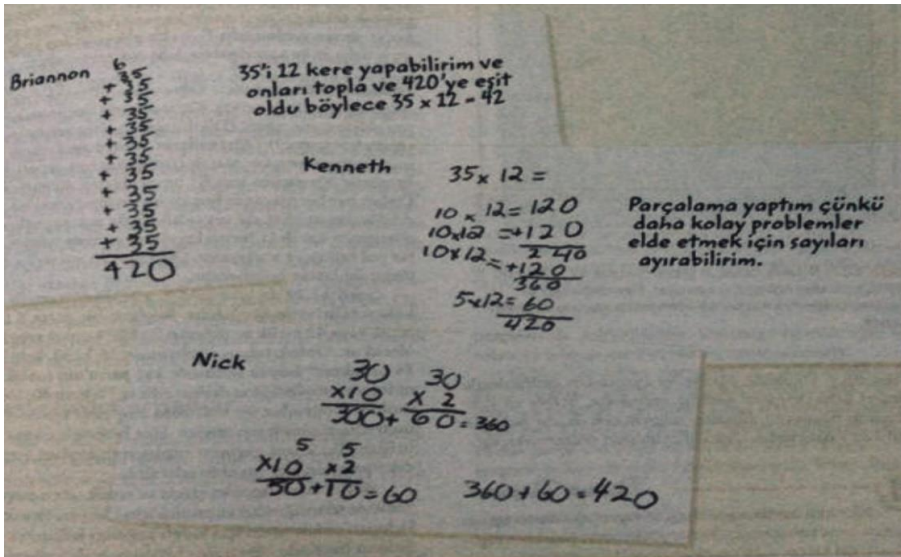 Briannon
6
35
+ 35
+ 35
+ 35
+ 35
+ 35
+ 35
+ 35
+ 35
+ 35
+ 35
+ 35
420
35'i 12 kere yapabilirim ve
onları topla ve 420'ye eşit
oldu böylece 35 x 12 - 42
Kenneth
35 x 12 =
10 x 12 = 120
10x12 = +120
240
10x12 = +120
360
5x12 = 60
420
Parçalama yaptım çünkü
daha kolay problemler
elde etmek için sayıları
ayırabilirim.
Nick
30 30
x10 x 2
300 + 60 = 360
5 5
x10 x2
50 + 10 = 60 360 + 60 = 420